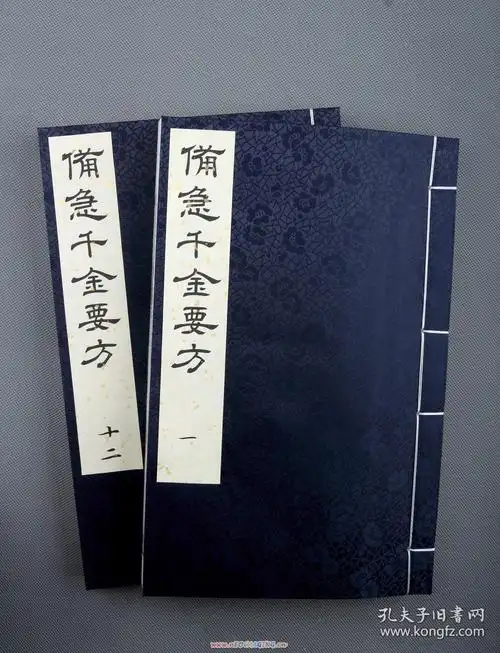 備急千金要方
十二
備急千金要方
一
孔夫子旧书网
www.kongfz.com